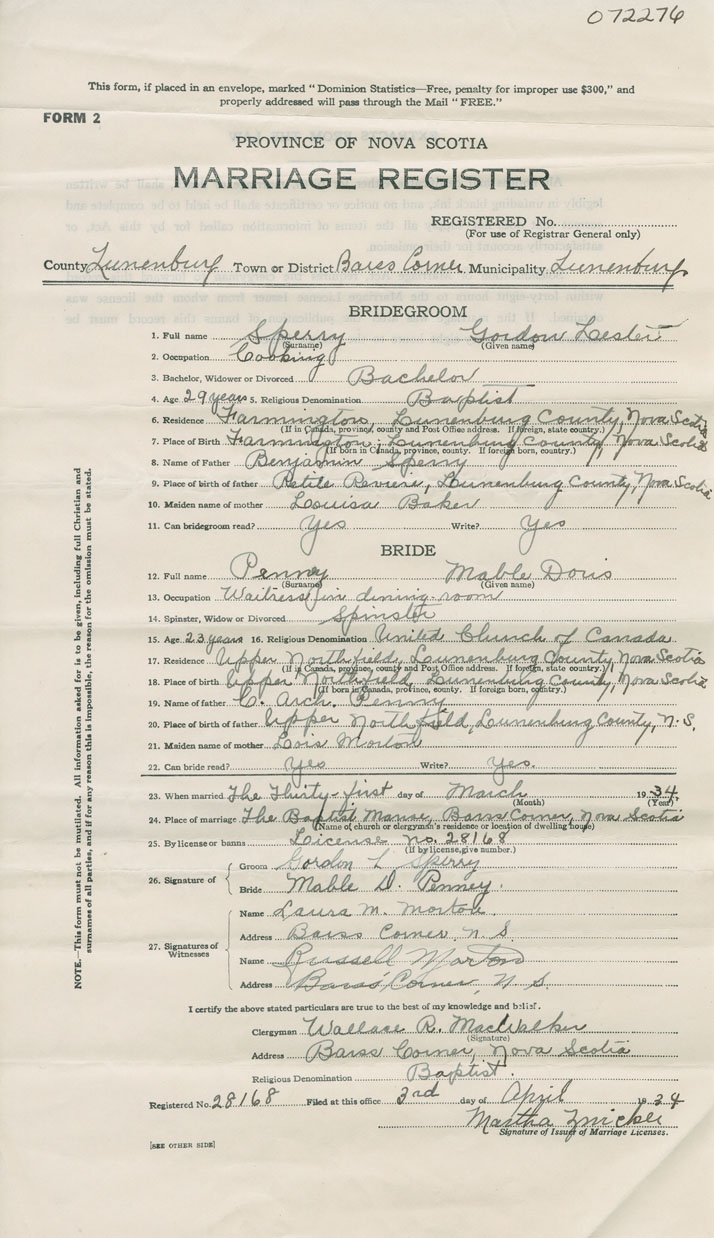 072276
This form, if placed in an envelope, marked "Dominion Statistics—Free, penalty for improper use $300," and
properly addressed will pass through the Mail "FREE."
FORM 2
PROVINCE OF NOVA SCOTIA
MARRIAGE REGISTER
REGISTERED No.
(For use of Registrar General only)
County Lunenburg Town or District Barss Corner Municipality Lunenburg
BRIDEGROOM
1. Full name Sperry Gordon Lester
(Surname) (Given name)
2. Occupation Cooking
3. Bachelor, Widower or Divorced Bachelor
4. Age 29 years 5. Religious Denomination Baptist
6. Residence Farmington, Lunenburg County, Nova Scotia
(If in Canada, province, county and Post Office address. If foreign, state country.)
7. Place of Birth Farmington, Lunenburg County, Nova Scotia
(If born in Canada, province, county. If foreign born, country.)
8. Name of Father Benjamin Sperry
9. Place of birth of father Petite Reviere, Lunenburg County, Nova Scotia
10. Maiden name of mother Louisa Baker
11. Can bridegroom read? Yes Write? Yes
BRIDE
12. Full name Penney Mable Doris
(Surname) (Given name)
13. Occupation Waitress in dining-room
14. Spinster, Widow or Divorced Spinster
15. Age 23 years 16. Religious Denomination United Church of Canada
17. Residence Upper Northfield, Lunenburg County, Nova Scotia
(If in Canada, province, county and Post Office address. If foreign, state country.)
18. Place of birth Upper Northfield, Lunenburg County, Nova Scotia
(If born in Canada, province, county. If foreign born, country.)
19. Name of father C. Arch. Penney
20. Place of birth of father Upper Northfield, Lunenburg County, N.S.
21. Maiden name of mother Lois Morton
22. Can bride read? Yes Write? Yes.
23. When married The Thirty-first day of March 1934
(Month) (Year)
24. Place of marriage The Baptist Manse, Barss Corner, Nova Scotia
(Name of church or clergyman's residence or location of dwelling house)
25. By license or banns License no. 28168
(If by license, give number.)
26. Signature of
Groom Gordon L Sperry
Bride Mable D. Penney
27. Signatures of Witnesses
Name Laura M. Morton
Address Barss Corner N.S.
Name Russell Morton
Address Barss Corner, N.S.
I certify the above stated particulars are true to the best of my knowledge and belief.
Clergyman Wallace R. MacWalker
(Signature)
Address Barss Corner, Nova Scotia
Religious Denomination Baptist.
Registered No. 28168 Filed at this office 3rd day of April 1934
Martha Zwicker
Signature of Issuer of Marriage Licenses.
[SEE OTHER SIDE]
NOTE.—This form must not be mutilated. All information asked for is to be given, including full Christian and
surnames of all parties, and if for any reason this is impossible, the reason for the omission must be stated.